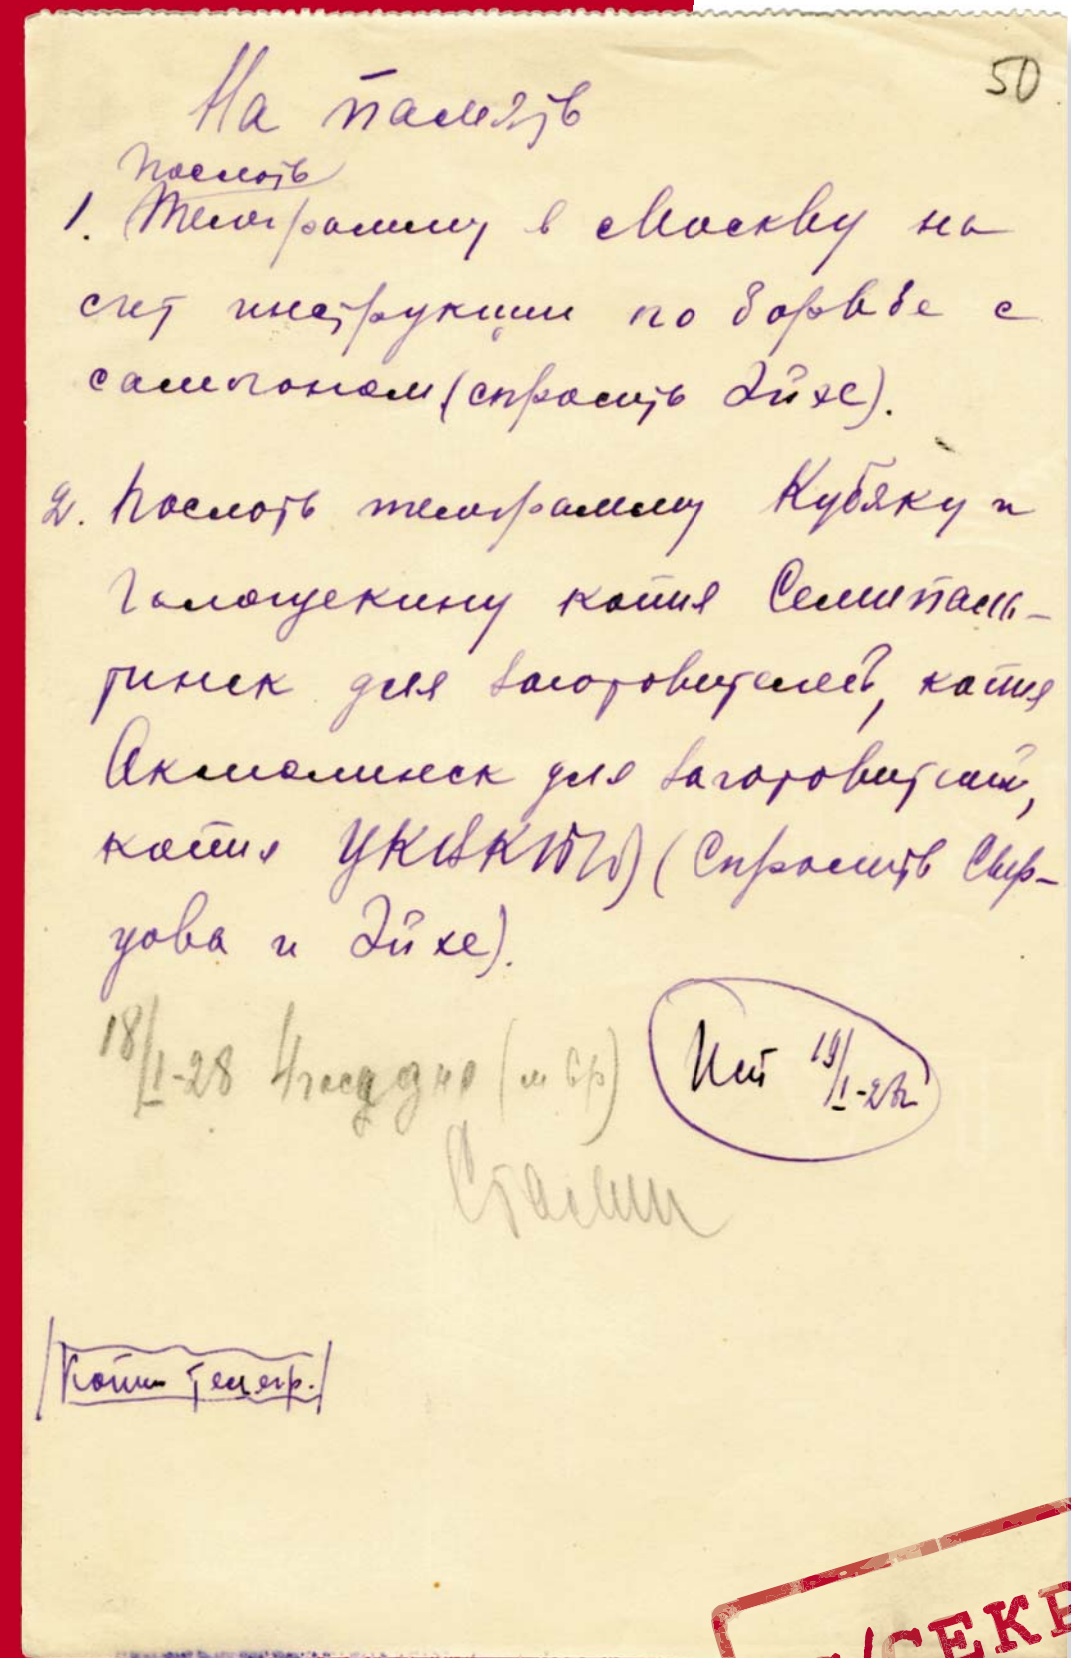 50
На память
Послать
1. Телеграмму в Москву на
счет инструкции по борьбе с
самогоном (спросить Эйхе).
2. Послать телеграмму Кубяку и
Голощекину копия Семипала-
тинск для заготовителей, копия
Акмолинск для заготовителей,
копия (Спросить Сыр-
цова и Эйхе).
18/I-28 4 часа дня (м вр)
Исп 19/I-28
Сталин
Копии телегр.
/СЕКР